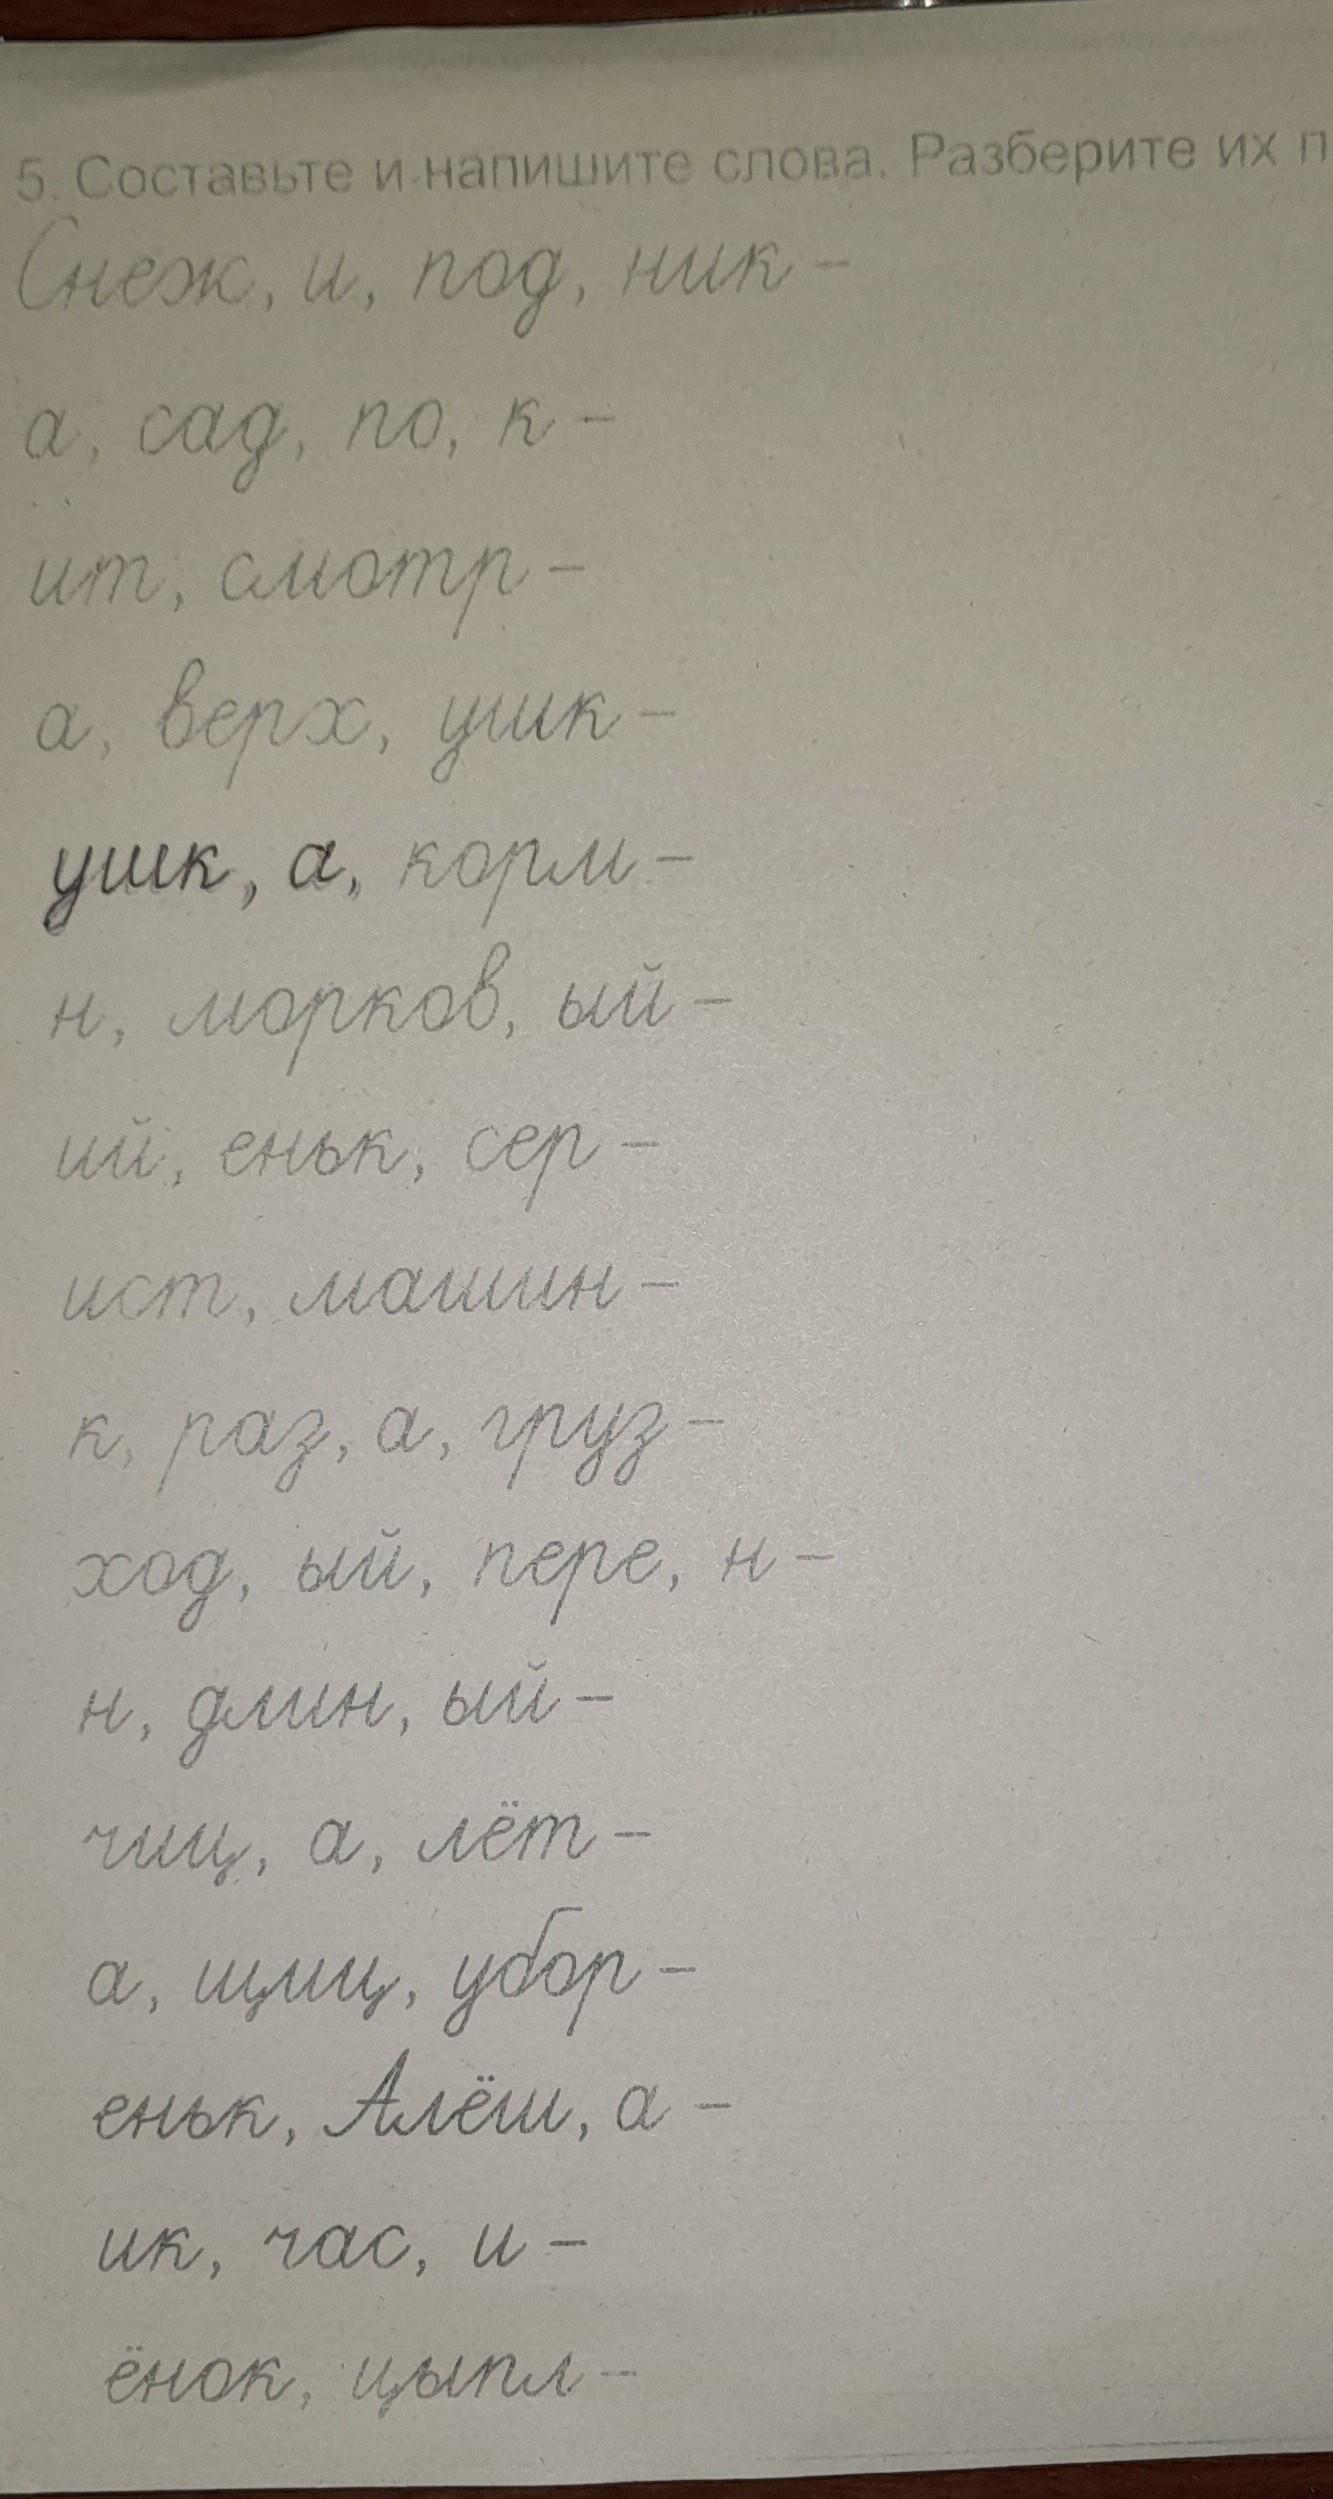 5. Составьте и напишите слова. Разберите их п
Снеж, и, под, ник –
а, сад, по, к –
ит, смотр –
а, верх, ушк –
ушк, а, корм –
н, морков, ый –
ий, еньк, сер –
ист, машин –
к, раз, а, груз –
ход, ый, пере, н –
н, длин, ый –
чиц, а, лёт –
а, щиц, убор –
еньк, Алёш, а –
ик, час, и –
ёнок, цыпл –